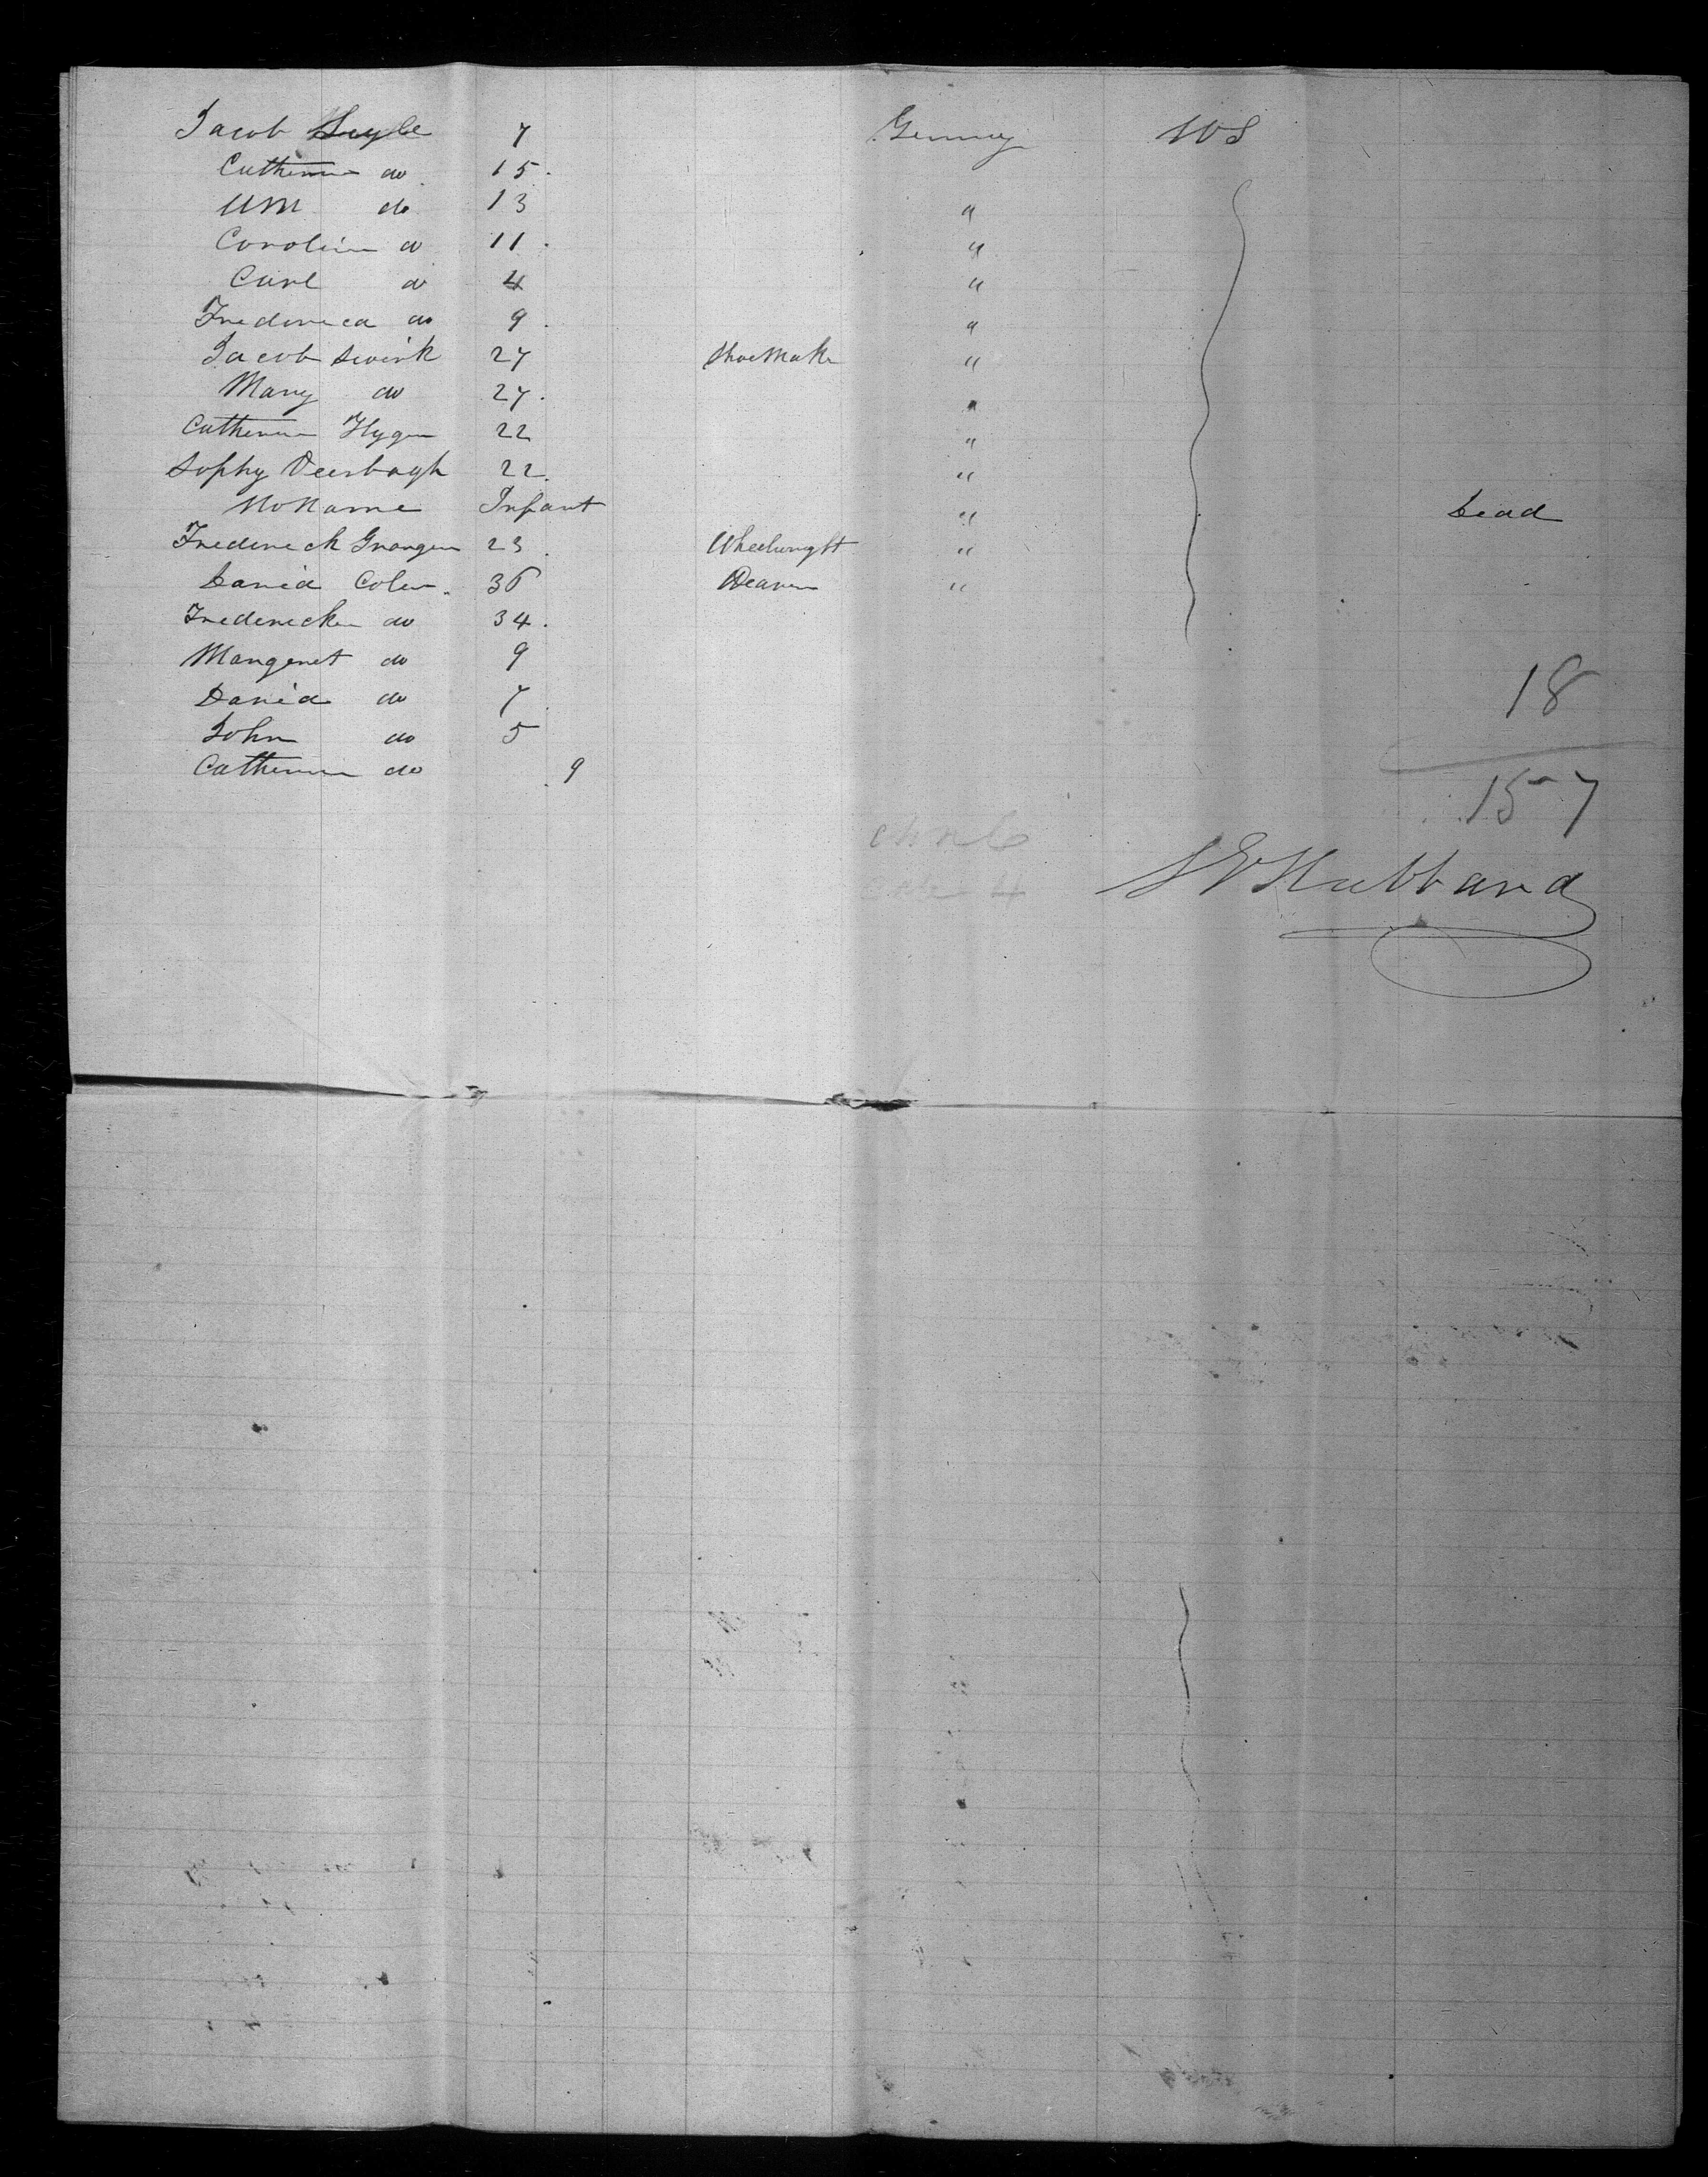 Jacob Seyle 7 Germny U S
Catherine do 15
Wm do 13 "
Caroline do 11 "
Carl do 4 "
Frederica do 9 "
Jacob Swink 27 Shoemaker "
Mary do 27 "
Catherine Flygen 22 "
Sophy Deerbaugh 22 "
No Name Infant " Dead
Frederick Granger 23 Wheelwright "
David Coler 36 Weaver "
Fredericke do 34
Margaret do 9
David do 7
John do 5
Catherine do 9
18
157
Hubbard